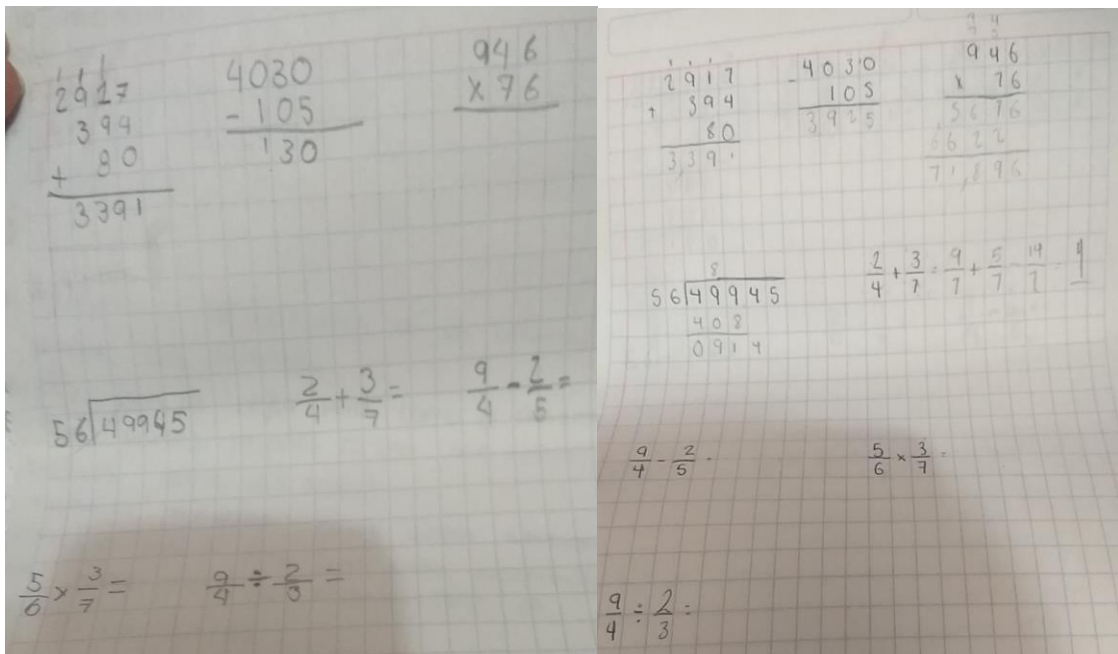 1 1 1
2917
394
+ 80
3391
4030
- 105
130
946
x 76
56 49945
2/4 + 3/7 =
9/4 - 2/5 =
5/6 x 3/7 =
9/4 ÷ 2/3 =
1 1 1
2917
+ 394
80
3,391
- 4030
105
3925
946
x 76
5676
6622
71,896
8
56 49945
408
0914
2/4 + 3/7 = 9/7 + 5/7 = 14/7
9/4 - 2/5 =
5/6 x 3/7 =
9/4 ÷ 2/3 =